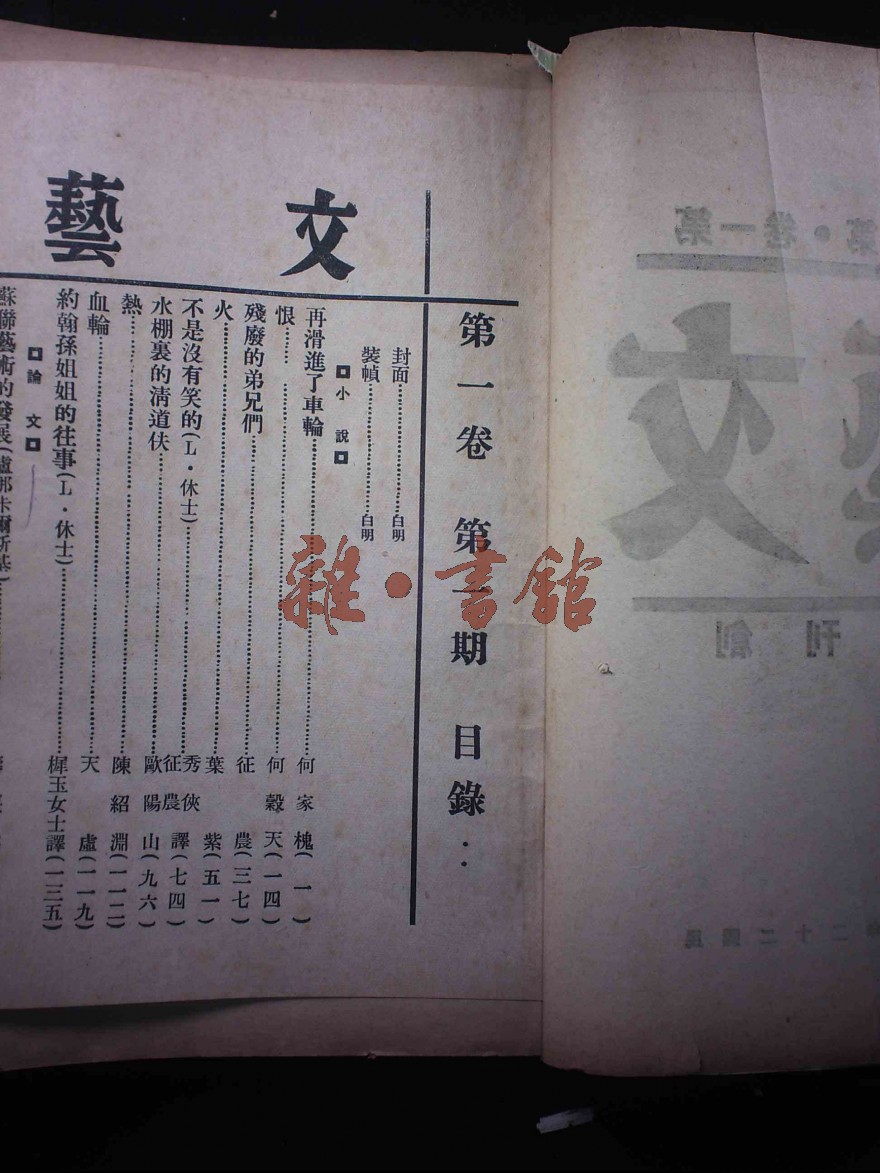 文藝
第一卷 第一期 目錄：
封面……………白明
裝幀……………白明
小說
再滑進了車輪……………何家槐(一)
恨……………何穀天(一四)
殘廢的弟兄們……………征農(三七)
火……………葉紫(五一)
不是沒有笑的(L·休士)……………秀俠 征農譯(七四)
水棚裏的清道伕……………歐陽山(九六)
熱……………陳紹淵(一一二)
血輪……………天虛(一一九)
約翰孫姐姐的往事(L·休士)……………樨玉女士譯(一三五)
論文
蘇聯藝術的發展(盧那卡爾斯基)
雜·書館
第一卷·第
文
創刊
民國二十二